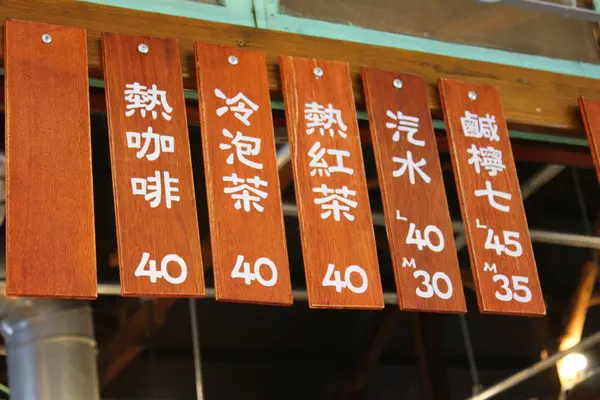 熱咖啡 40
冷泡茶 40
熱紅茶 40
汽水 L40 M30
鹹檸七 L45 M35